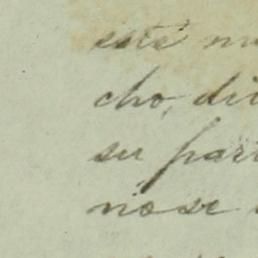 este m
cho, di
su par
nose